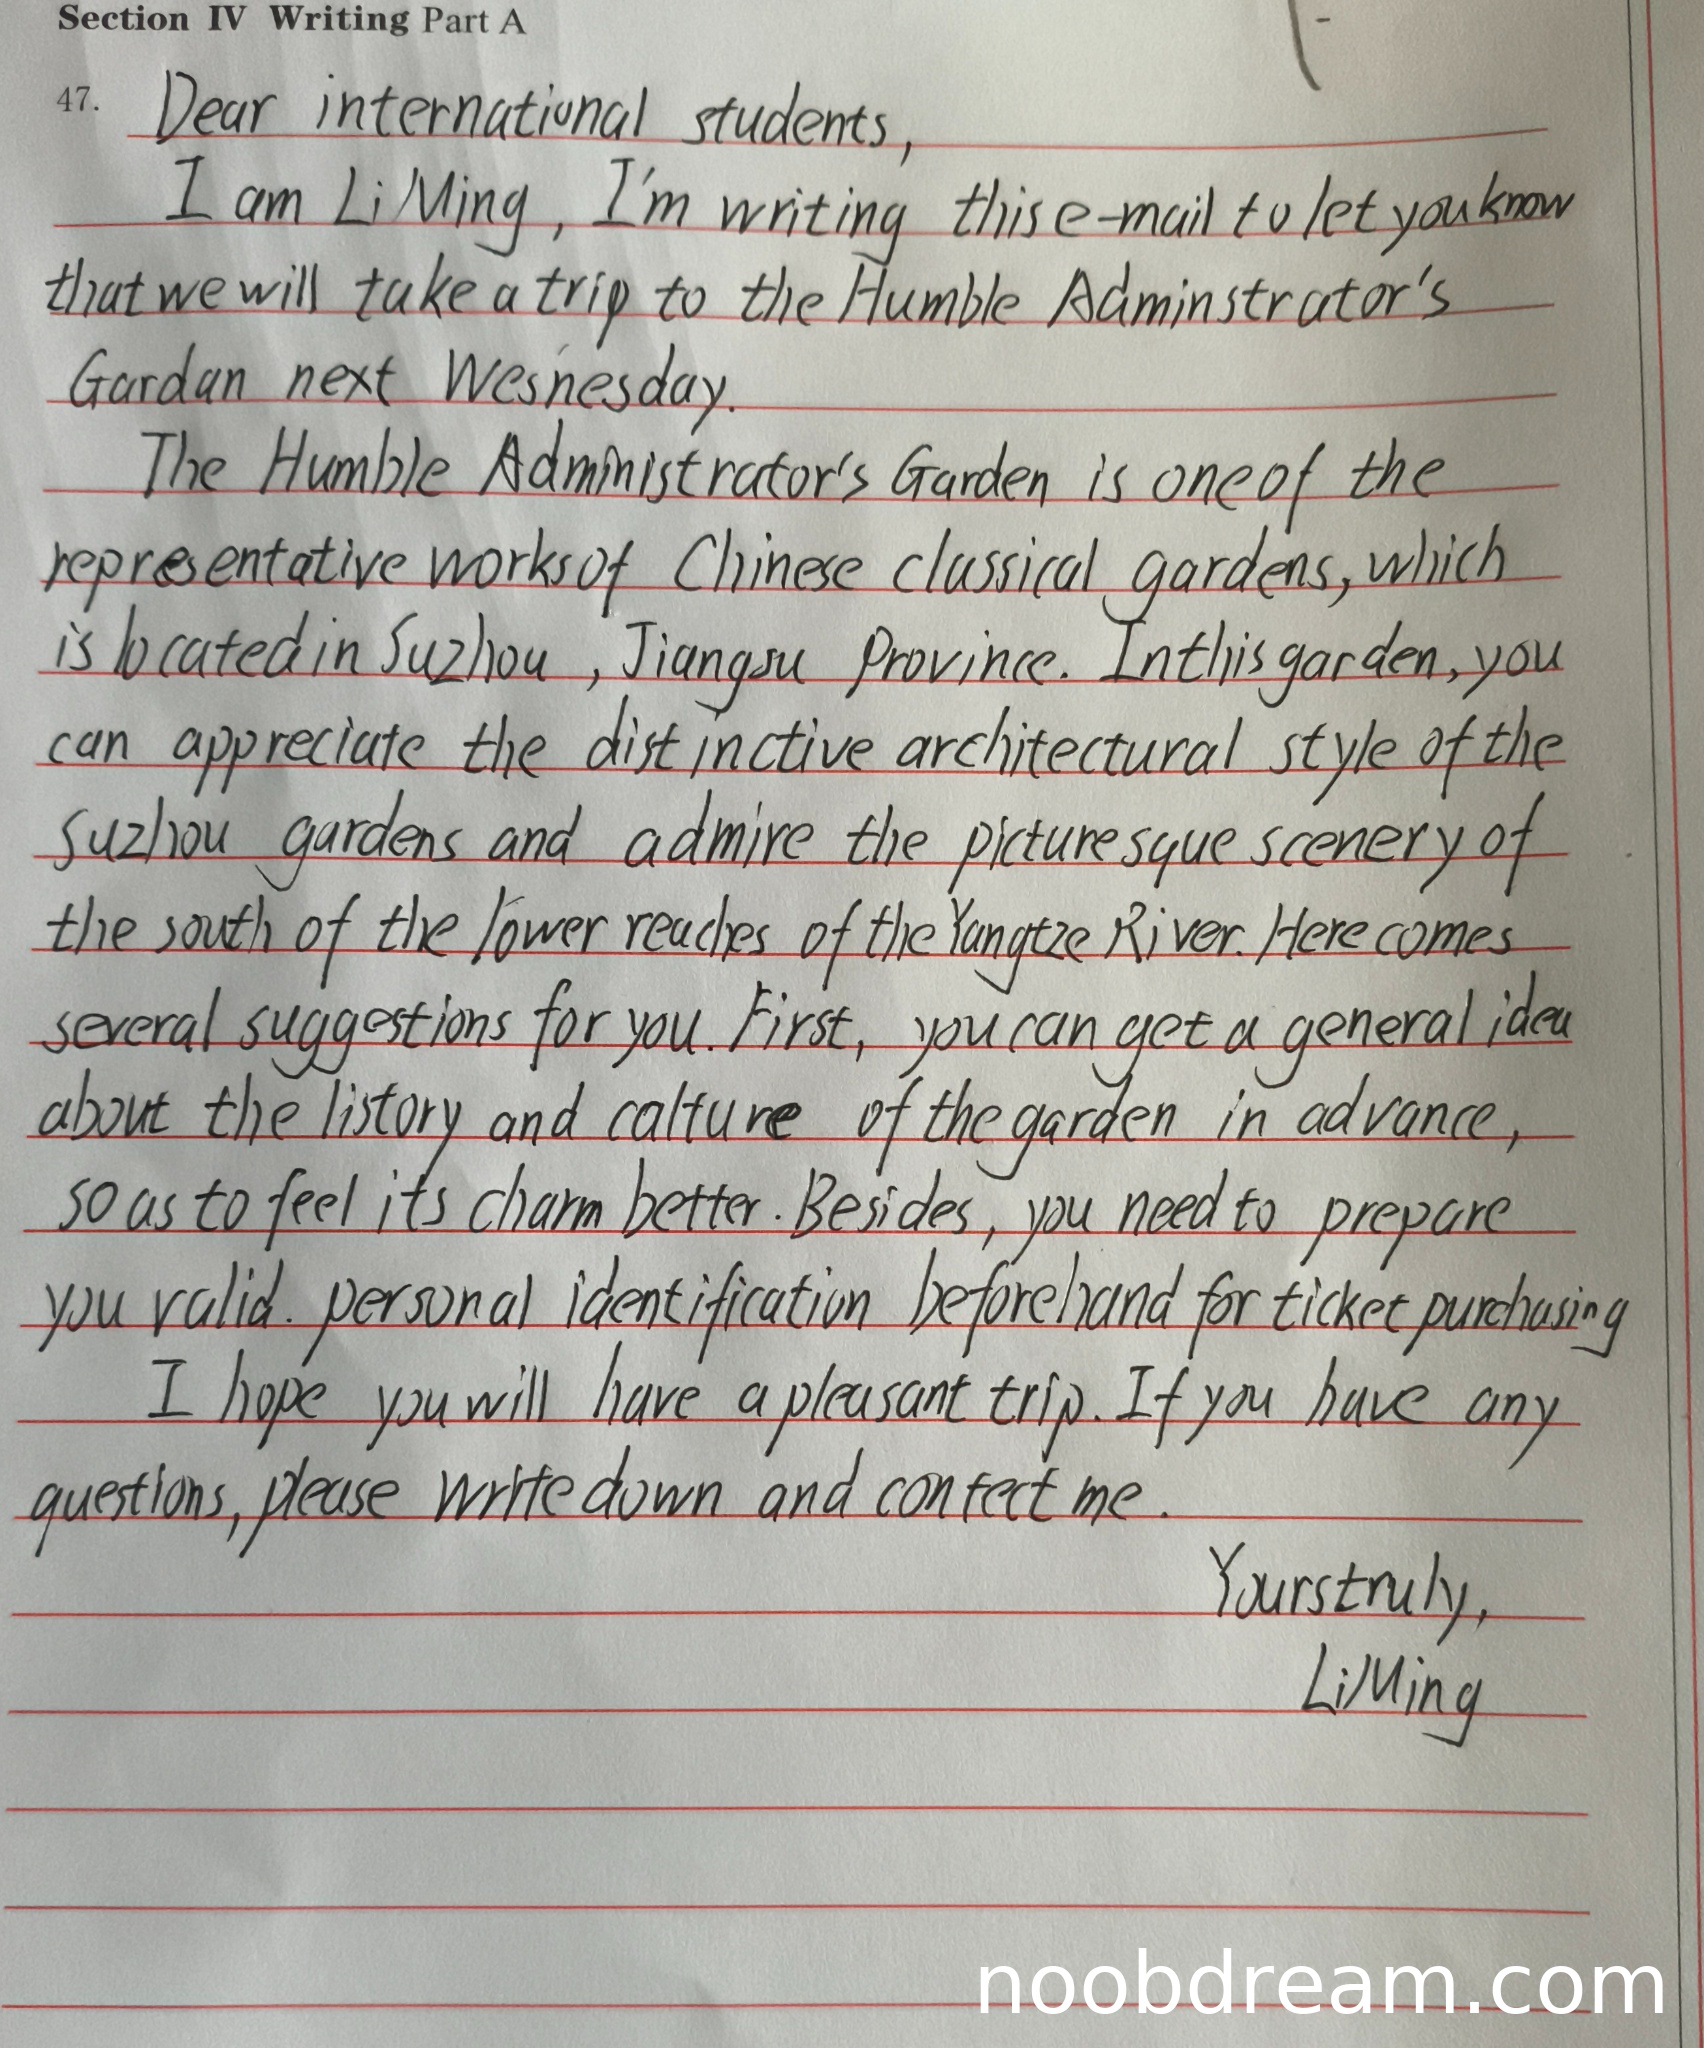 Section IV Writing Part A
47. Dear international students,
I am Li Ming, I'm writing this e-mail to let you know
that we will take a trip to the Humble Adminstrator's
Gardan next Wesnesday.
The Humble Administrator's Garden is one of the
representative works of Chinese classical gardens, which
is located in Suzhou, Jiangsu Province. In this garden, you
can appreciate the distinctive architectural style of the
Suzhou gardens and admire the picturesque scenery of
the south of the lower reaches of the Yangtze River. Here comes
several suggestions for you. First, you can get a general idea
about the listory and calture of the garden in advance,
so as to feel its charm better. Besides, you need to prepare
you valid. personal identification beforehand for ticket purchasing
I hope you will have a pleasant trip. If you have any
questions, please write down and contect me.
Yours truly,
Li Ming
noobdream.com